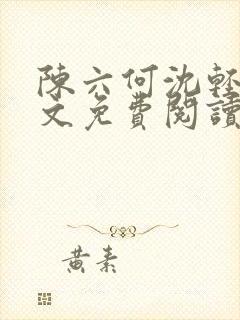 陳六何沈輕
文免費閱讀
黃素